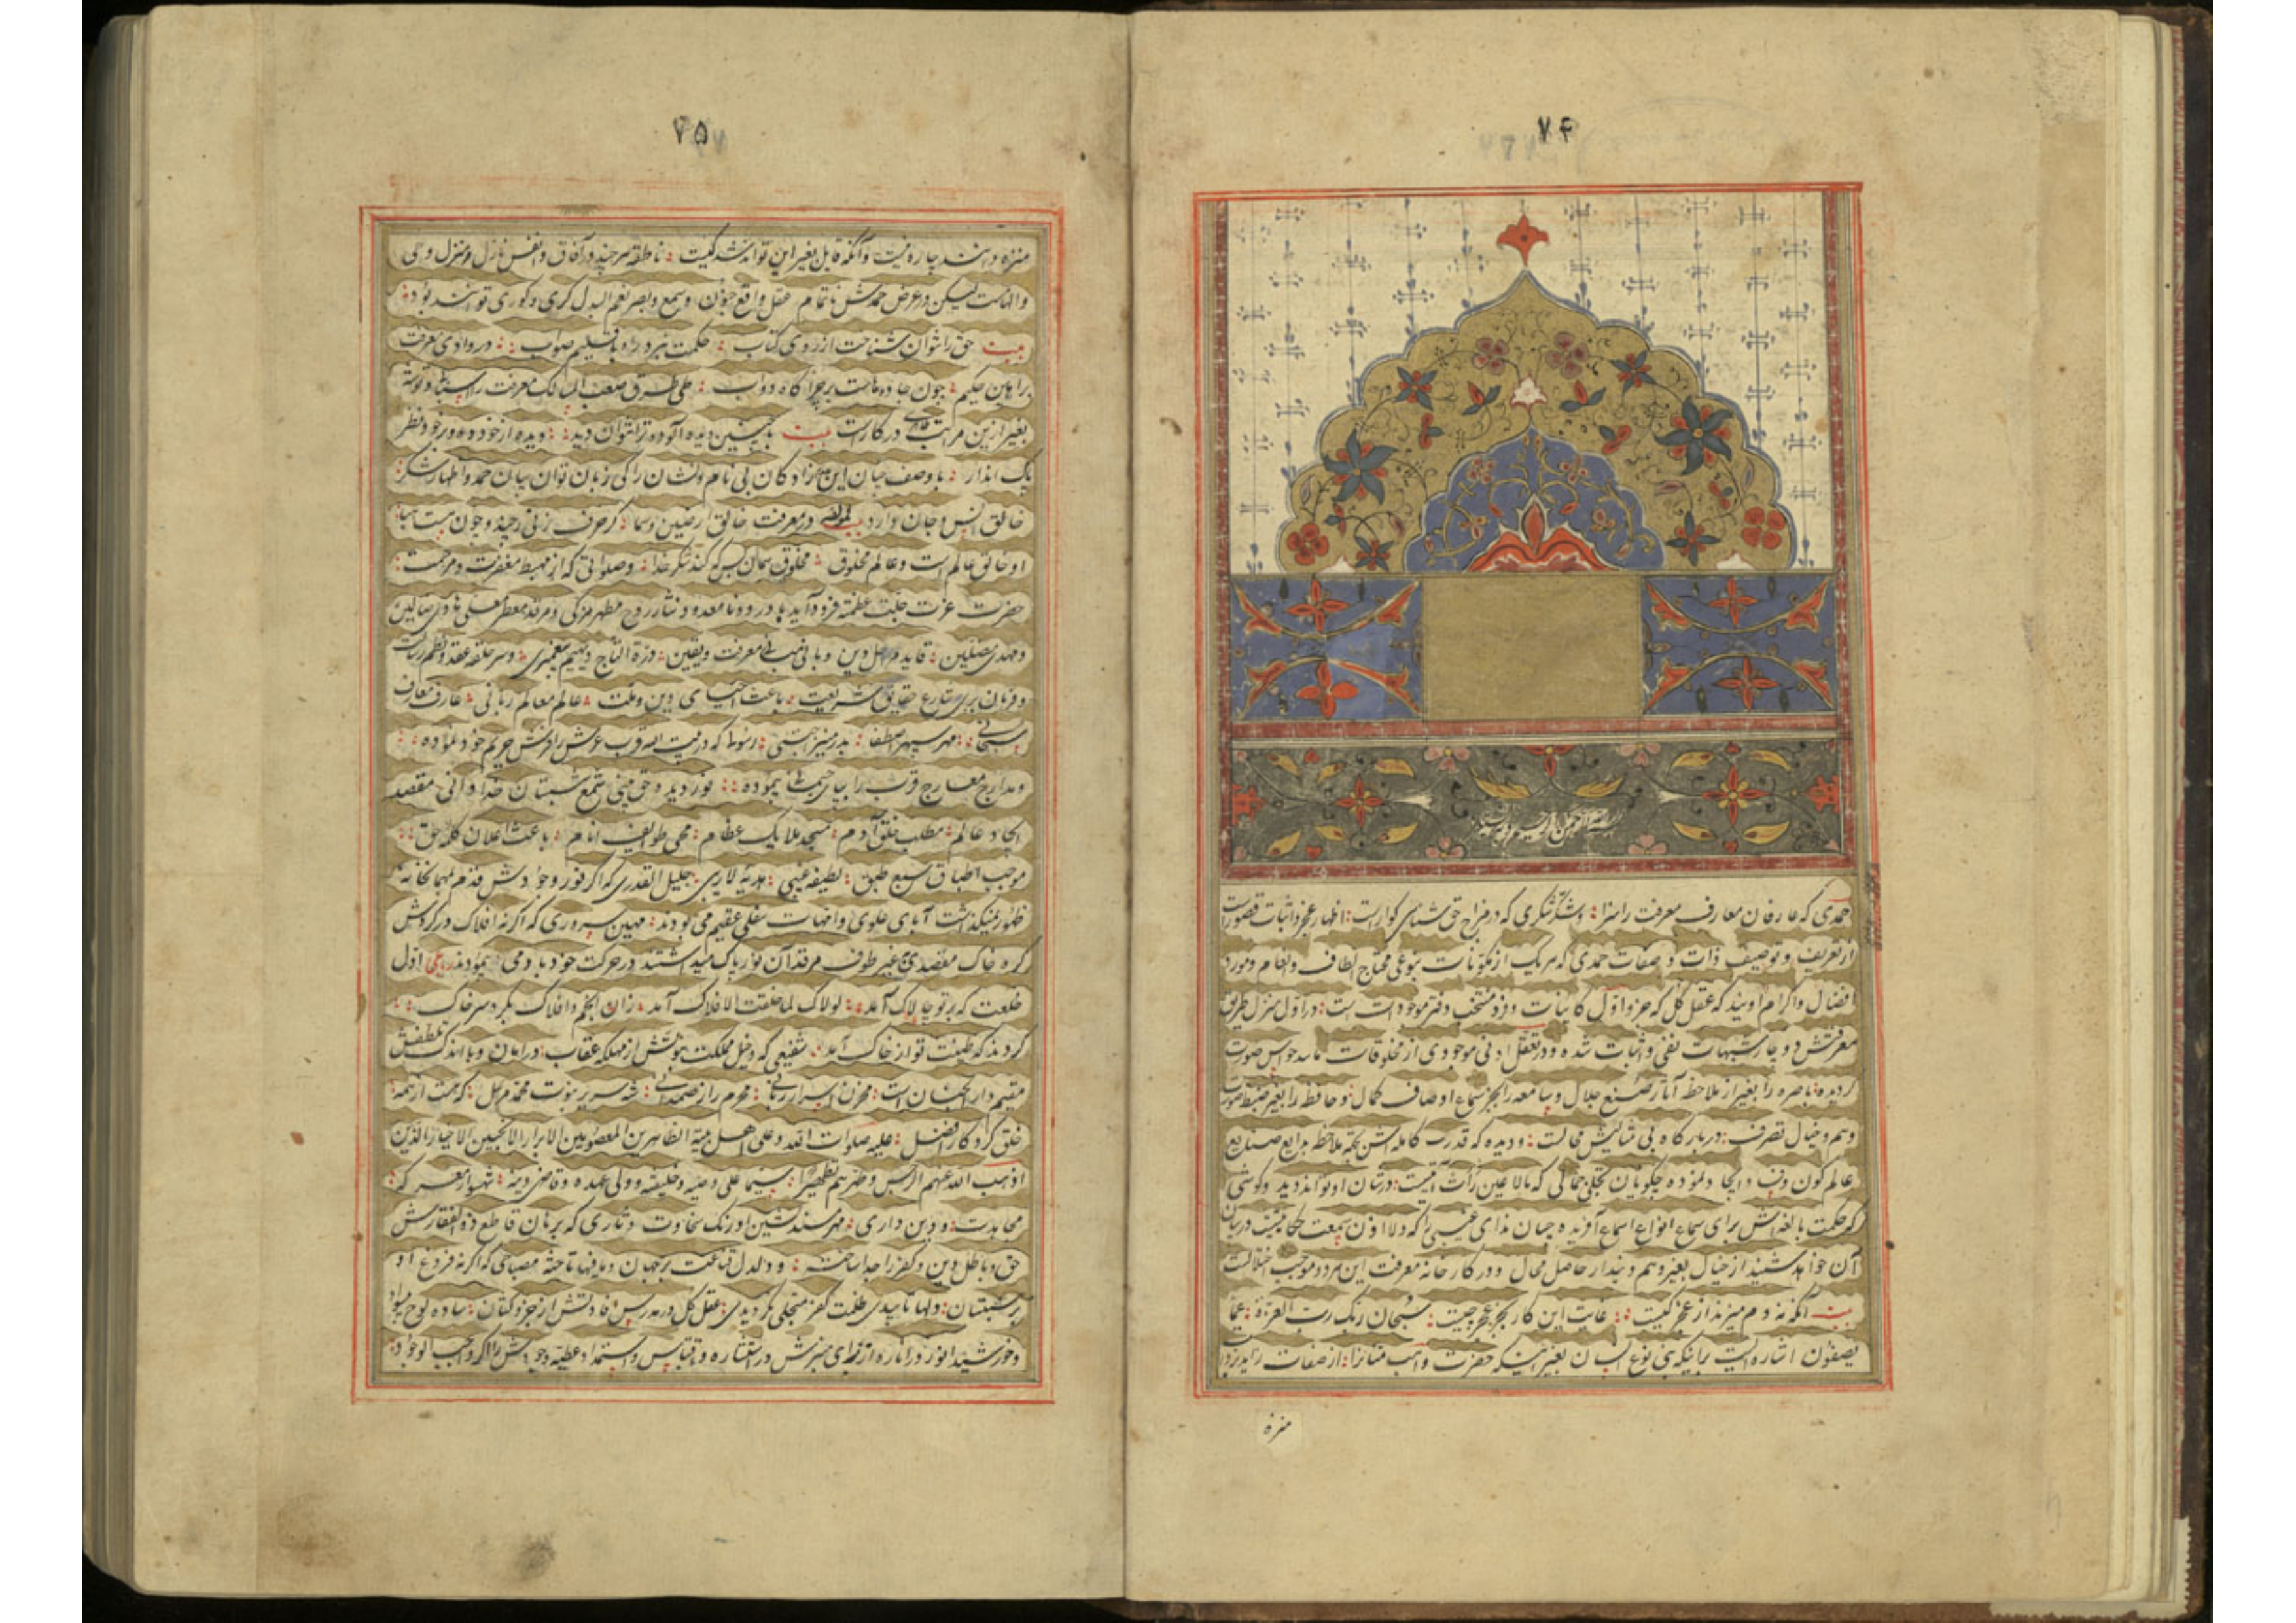 ۷۴
بسم الله الرحمن الرحیم و به نستعین
حمدی که عارفان معارف معرفت را سزا و شکری که در مزاج حق شناسی کواراست اظهار عجز و اثبات قصور است
از تعریف و توصیف ذات و صفات حمدی که هر یک از مکونات بنوعی محتاج الطاف و انعام و مورد
افضال و اکرام اویند که عقل کل که جزو اول کاینات و فرد منتخب دفتر موجودات است در اول منزل طریق
معرفتش دوچار شبهات نفی و اثبات شده و در تعقل ادنی موجودی از مخلوقات حواس صورت
کردیده باصره را بغیر از ملاحظه آثار صنع جلال و سامعه را بجز سماع اوصاف کمال و حافظه را بغیر ضبط صوت
وهم و خیال تصرف دربارکاه بی مثالیش محالست و دیده که قدرت کامله اش بجهة ملاحظه بدایع صنایع
عالم کون و فساد ایجاد نموده چکونه آن تجلی جمالی که مالا عین رأت آیتیست در شان او تواند دید و کوشی
که حکمت بالغه اش برای سماع انواع اسماع آفریده چسان ندای غیبی را که ولا اذن سمعت حکایتیست در بیان
آن خواهد شنید از خیال بغیر وهم و پندار حاصل محال و در کارخانه معرفت این هر دو موجب اختلالست
بیت آنکه نه دم میزند از عجز کیست غایت این کار بجز عجز چیست سبحان ربک رب العزة عما
یصفون اشاره ایست برانیکه بنی نوع انسان بغیر اینکه حضرت واهب را از صفات زایده بر ذات
منزه
۷۵
منزه دانند چاره نیست و آنکه قایل بغیر این تواند شد کیست ناطقه هر چند در آفاق و انفس نازل و منزل وحی
و الهامست لیکن در عرض حمدش ناتمام عقل واقع چون و سمع و بصر نعم البدل کری و کوری توانند بود
بیت حق را نتوان شناخت از روی کتاب حکمت نبرد راه باقلیم صواب در وادی معرفت
براهین حکیم چون جاده هاست بر چراکاه دواب طی طرق صعب المسالک معرفت را
بغیر ازین مراتب در کار است بیت بچنین دیده آلوده نتوان دید دیده از خود و در خود نظر
پاک انداز با وصف چنان این نام و نشان را کی زبان توان بیان حمد و اظهار شکر
خالق انس و جان دارد لمؤلفه در معرفت خالق ارضین و سما کر حرف زنی چند و چون هست هبا
او خالق عالم است و عالم مخلوق مخلوق همان به که کند شکر خدا و صلواتی که از مهبط مغفرت و مرحمت
حضرت عزت جلت عظمته فرود آید با درود نامعدود نثار روح مطهر مزکی و مرقد معطر معلی هادی ضالین
و مهدی مضلین قاید دین و بانی مبانی معرفت و یقین درة التاج دیهیم پیغمبری و سر حلقه عقد و نظم رسالت
و شارع حقایق شریعت باعث احیای دین و ملت عالم معالم ربانی عارف معارف
سبحانی مهر سپهر اصطفا بدر منیر اجتبی که در قرب عرش را فرش حریم خود نموده
و مدارج معارج قرب را بپای پیموده نور دیده حق بینی شمع شبستان خدادانی مقصد
ایجاد عالم مطلب خلق آدم مسجد ملایک عظام محیی طوایف انام باعث اعلان کلمه حق
موجب اطباق سبع طبق لطیفه غیبی هدیه لاریبی جلیل القدری که اکر نور وجودش قدم بمهمانخانه
ظهور نمیکذاشت آبای علوی و امهات سفلی عقیم می بودند مهین سروری که اکر نه افلاک در کردش
کره خاک مقصدی غیر طوف مرقد آن نور پاک میداشتند در حرکت خود بادمی اول
خلعت که بر تو چالاک آمد لولاک لما خلقت الافلاک آمد زان انجم و افلاک بکرد سر خاک
کردند که طینت تو از خاک آمد شفیعی که دخیل مملکت نبوتش از مهلکه عقاب در امان و تلطفش
مقیم دار الجنان است مخزن اسرار ربانی محرم راز صمدانی شه سریر نبوت محمد مرسل که هست از همه
خلق کردکار افضل علیه صلوات الله و علی اهل بیته الطاهرین المعصومین الابرار الانجبین الاخیار الذین
اذهب الله عنهم الرجس و طهرهم تطهیرا سیما علی وصیه و خلیفته و ولی عهده و قاضی دینه شهباز معرکه
مجاهدت و دین داری مهر مسند نشین اورنک سخاوت دثاری که برهان قاطع ذوالفقارش
حق و باطل دین و کفر را جدا ساخته و دلدل قناعت بر جهان و مافیها تاخته مصباحی که اکر نه فروغ او
بر شبستان دلها تابیدی ظلمت کفر منجلی نکردیدی عقل کل در مدرس افادتش از جزو کشان ساده لوح
و خورشید انور در اناره از ضیای منیرش در استناره و اقتباس و استمداد عطیه وجودش را اکر واجب الوجود